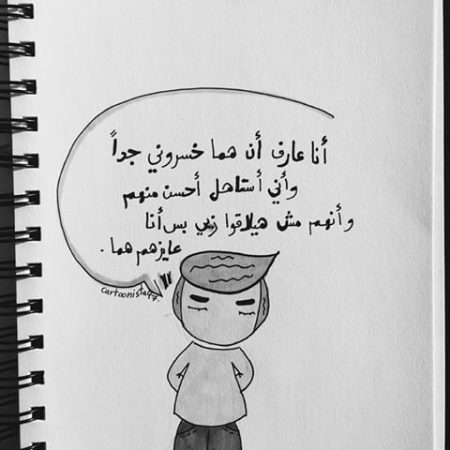 أنا عارف أن هما خسروني جداً
وأني أستاهل أحسن منهم
وأنهم مش هيلاقوا زيي بس أنا
عايزهم هما .
cartoonista47.